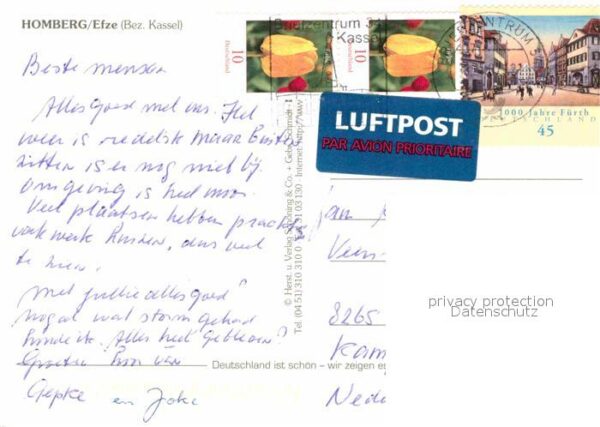 HOMBERG/Efze (Bez. Kassel)
Beste mensen
Alles goed met ons. Het
weer is redelijk maar buiten
zitten is er nog niet bij
omgeving is heel mooi
Veel plaatsen hebben prachtig
vakwerk huizen, dus veel
te zien.
Met jullie alles goed?
nogal wat storm gehad
hoorde ik. Alles heel gebleven?
Groeten
Gepke en Joke
© Herst. u. Verlag Schöning & Co. + Gebr. Schmidt
Tel. (04 51) 310 310
Internet: http://www
Deutschland ist schön – wir zeigen es
Deutschland
10
Deutschland
10
Briefzentrum 34
Kassel
BRIEFZENTRUM
1000 Jahre Fürth
DEUTSCHLAND
45
LUFTPOST
PAR AVION PRIORITAIRE
Jan
Veen
8265
Kam
Nede
privacy protection
Datenschutz